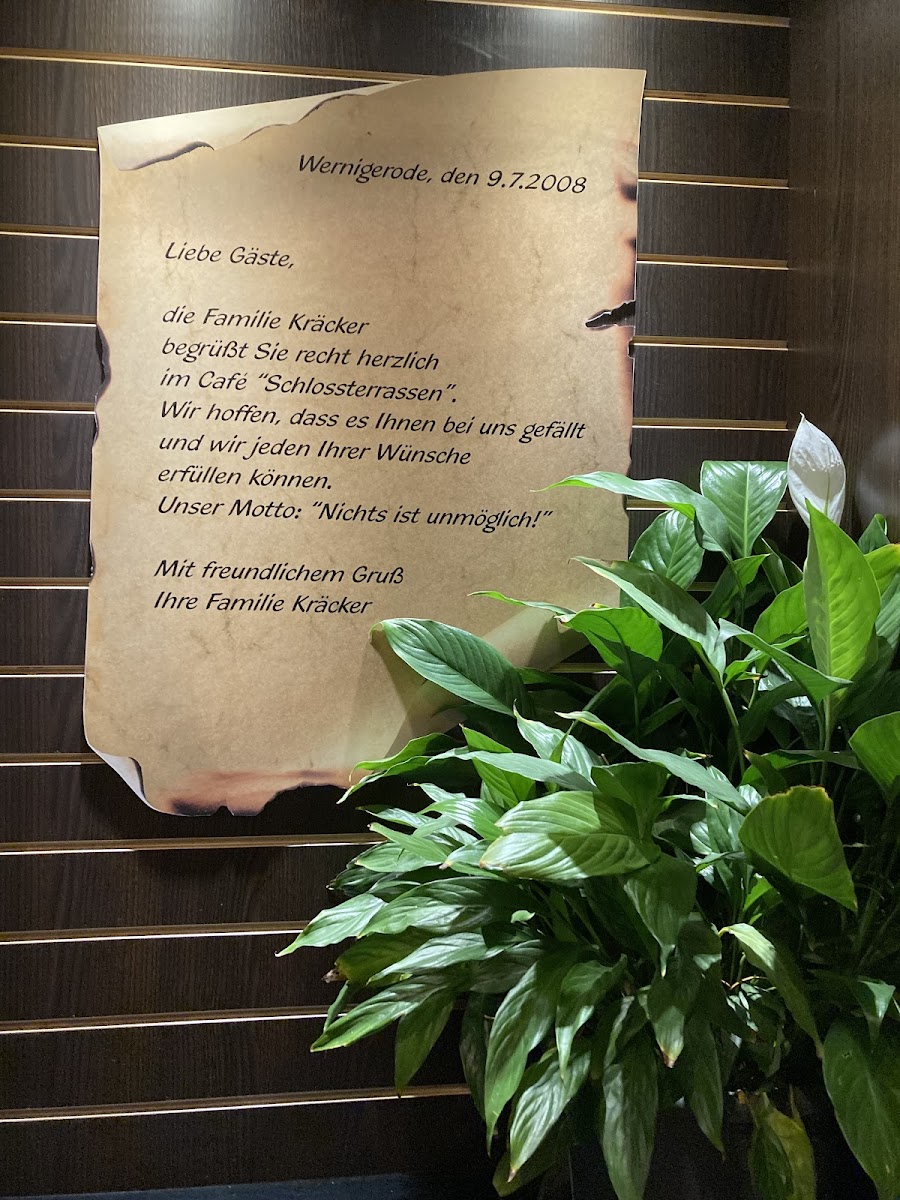 Wernigerode, den 9.7.2008
Liebe Gäste,
die Familie Kräcker
begrüßt Sie recht herzlich
im Café "Schlossterrassen".
Wir hoffen, dass es Ihnen bei uns gefällt
und wir jeden Ihrer Wünsche
erfüllen können.
Unser Motto: "Nichts ist unmöglich!"
Mit freundlichem Gruß
Ihre Familie Kräcker